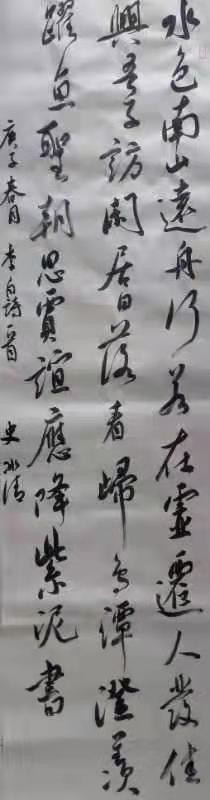 水色南山遠舟行若在虛遷人發佳
興吾子訪閑居日落看歸鳥潭澄羨
躍魚聖朝思賈誼應降紫泥書
庚子春月 李白詩一首 史冰清